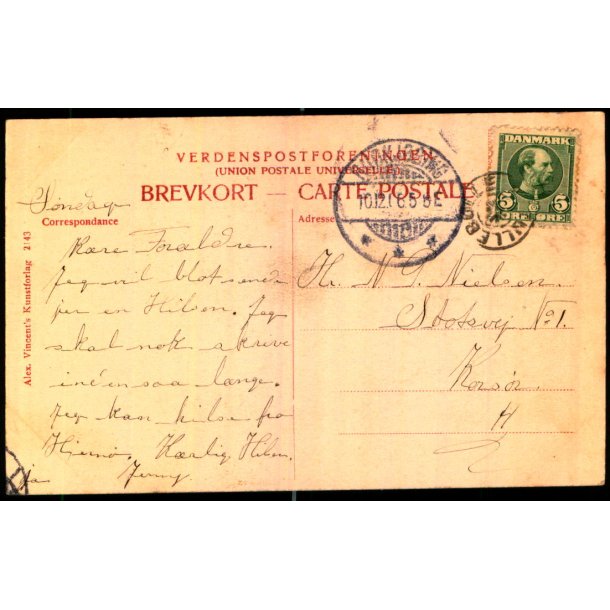 VERDENSPOSTFORENINGEN
(UNION POSTALE UNIVERSELLE)
BREVKORT — CARTE POSTALE
Søndag
Correspondance
Adresse
Kære Forældre.
Jeg vil blot sende
jer en Hilsen. Jeg
skal nok skrive
inden saa længe.
Jeg kan hilse fra
Hjemmet. Kærlig Hilsen.
Jenny.
Hr. N. P. Nielsen.
Slotsvej No 1.
Korsør
Alex. Vincent's Kunstforlag 2143
DANMARK
5 5
ØRE ØRE
10.12.